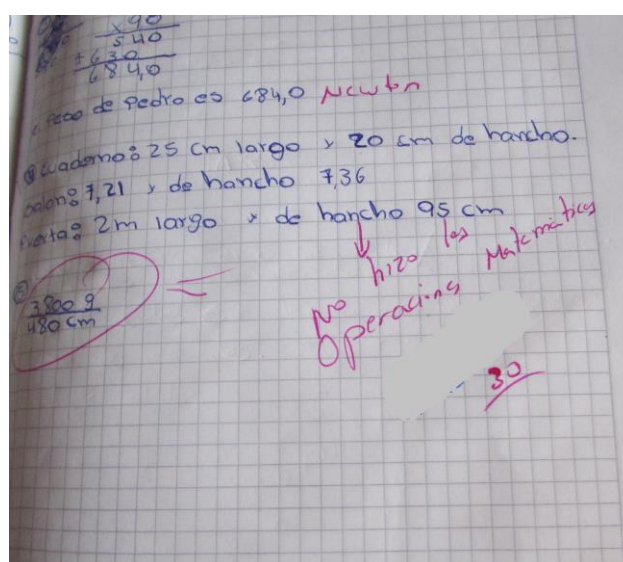 x 90
540
+ 630
684,0
peso de Pedro es 684,0 Newton
Cuaderno: 25 cm largo y 20 cm de hancho.
balon: 7,21 y de hancho 7,36
Puerta: 2m largo y de hancho 95 cm
No hizo las
Operacions Matemáticas
3800 g =
480 cm
30